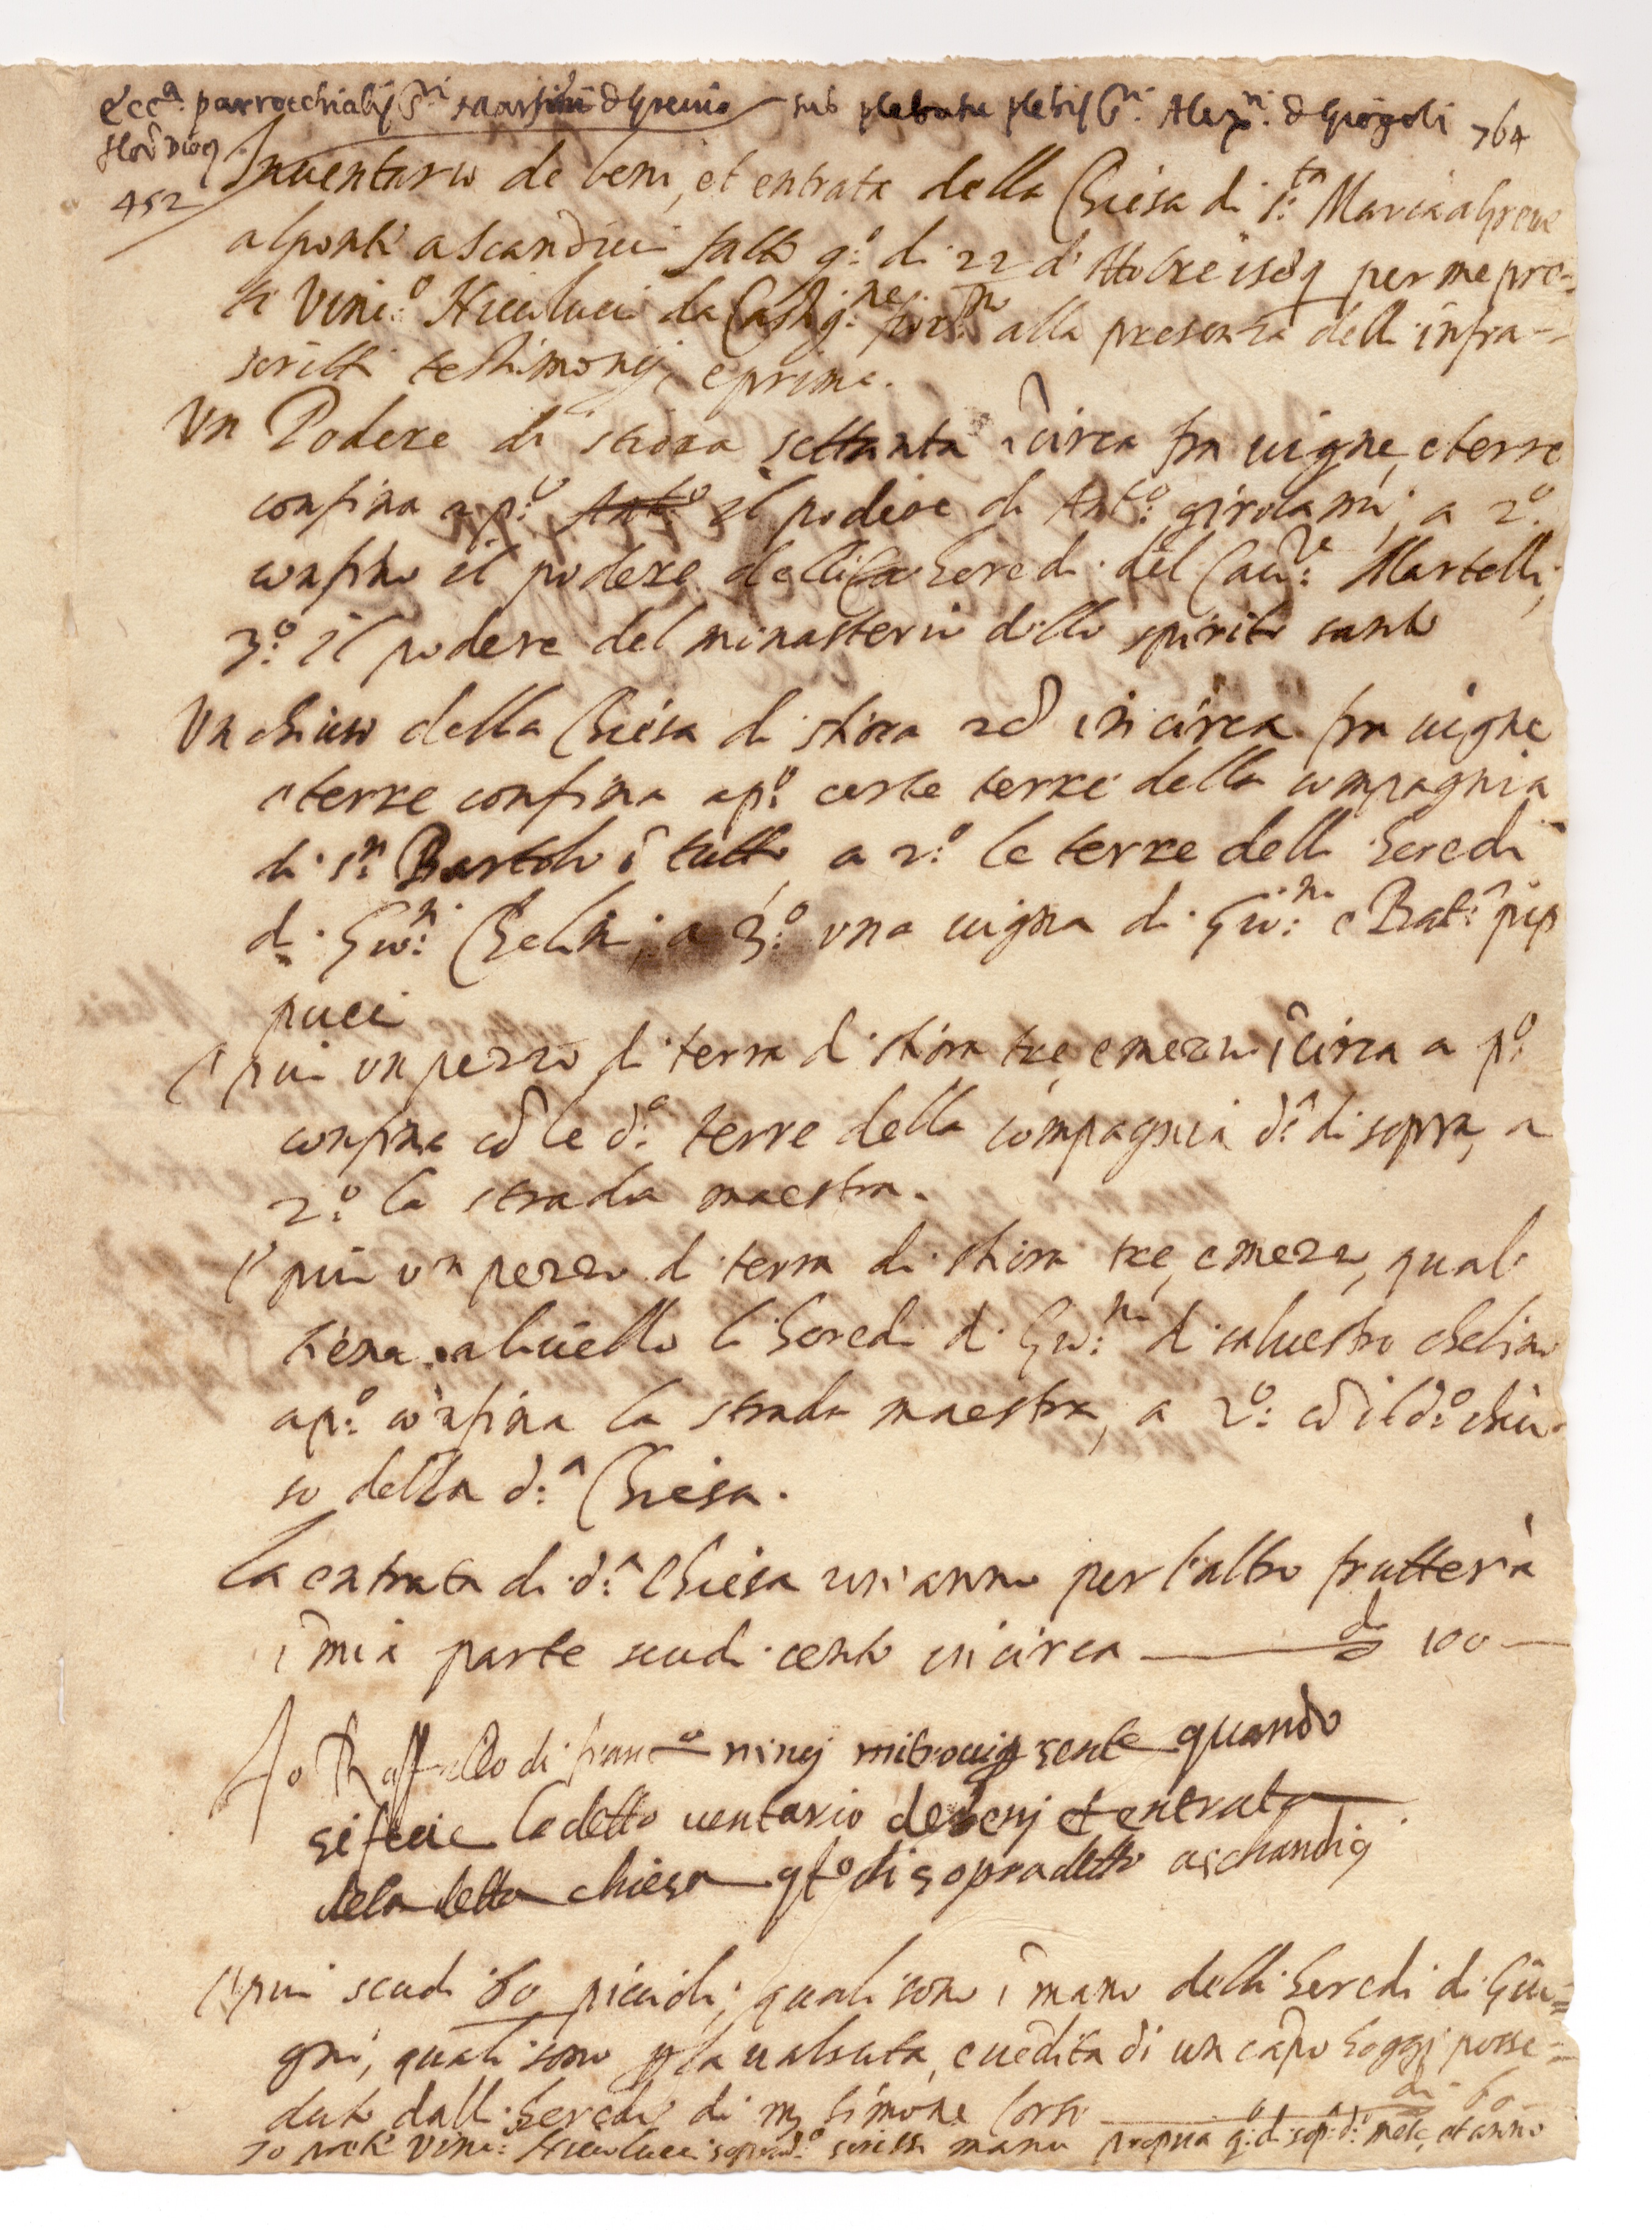 Ecc.a parrocchialis S.ti Martini de Greuio sub plebatu plebis S.ti Alex.ri de Giogoli 764
flor. dioc.
452
Inuentario de beni, et entrata della Chiesa di S.ta Maria a greue
al ponte a scandicci fatto q.o di 22 d'Ottobre per me pre-
te Vinc.o Niccolucci da alla presentia delli infra-
scritti testimonij, e prima.
Un Podere di stiora settanta ĩcirca fra uigne, e terre
confina a p.o il podere di Ant.o girolami, a 2.o
confino il podere delli heredi del Cau.re Martelli,
3.o il podere del monasterio dello spirito santo
Un chiuso della Chiesa di stiora 28 in circa fra uigne
e terre confina a p.o certe terre della compagnia
di s.n Bartolo ĩ tutto, a 2.o le terre delli heredi
di Gio.ni Chelini; a 3.o una uigna di Gio.ni e Bat.a pip
pucci
E piu un pezzo di terra di stiora tre, e mezzo ĩcirca a p.o
confina cõ le d.e terre della compagnia d.a di sopra, a
2.o la strada maestra.
E piu un pezzo di terra di stiora tre, e mezzo, quale
tiene a liuello li heredi di Gio.ni di saluestro chelini
a p.o confina la strada maestra, a 2.o cõ il d.o chiu-
so della d.a Chiesa.
La entrata di d.a Chiesa un'anno per l'altro frutterà
ĩ mia parte scudi cento in circa 100
Io Raffaello di franc.o ninj mi trouai presente quando
si fecie la detto uentario de benj et entrata
dela detta chiesa q.to di sopradetto aschandicj
E piu scudi 60 piccioli; quali sono ĩ mano delli heredi di Giu-
gni, quali sono p la ualsuta, e uẽdita di un cãpo hoggi posse-
duto dalli heredi di m. simone corsi 60
Io prete Vinc.o Niccolucci soprad.o scrissi manu propria q.o di sop.a d.o mese, et anno